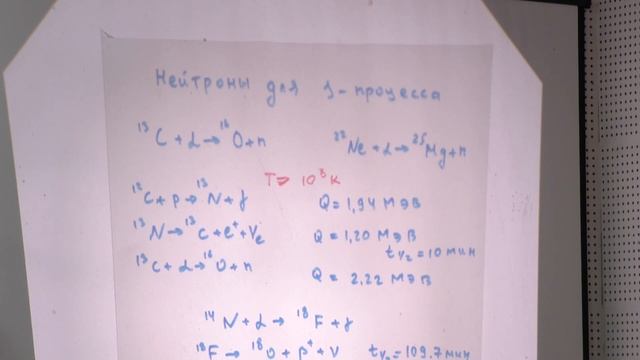 Нейтроны для s-процесса
¹³C + α → ¹⁶O + n ²²Ne + α → ²⁵Mg + n
T ⇒ 10⁸ K
¹²C + p → ¹³N + γ Q = 1,94 МэВ
¹³N → ¹³C + e⁺ + νₑ Q = 1,20 МэВ
t₁/₂ = 10 мин
¹³C + α → ¹⁶O + n Q = 2,22 МэВ
¹⁴N + α → ¹⁸F + γ
¹⁸F → ¹⁸O + β⁺ + ν t₁/₂ = 109.7 мин